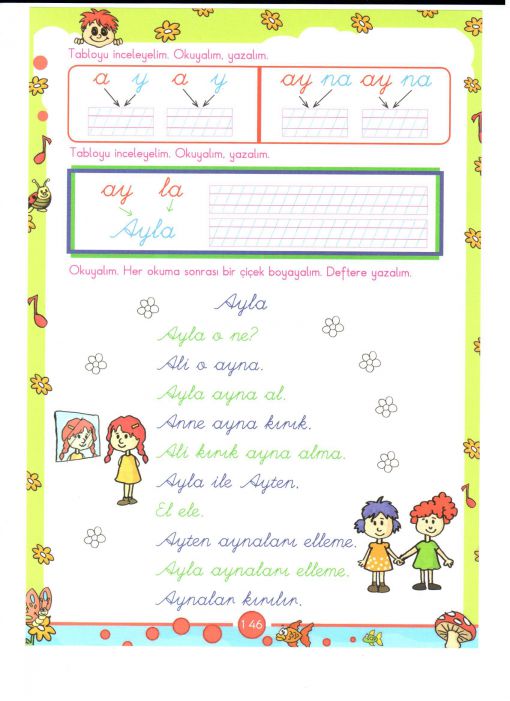 Tabloyu inceleyelim. Okuyalım, yazalım.
a y a y
ay na ay na
Tabloyu inceleyelim. Okuyalım, yazalım.
ay la
Ayla
Okuyalım. Her okuma sonrası bir çiçek boyayalım. Deftere yazalım.
Ayla
Ayla o ne?
Ali o ayna.
Ayla ayna al.
Anne ayna kırık.
Ali kırık ayna alma.
Ayla ile Ayten.
El ele.
Ayten aynaları elleme.
Ayla aynaları elleme.
Aynalar kırılır.
146